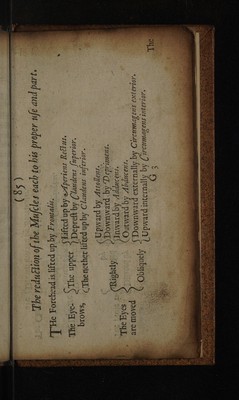 (85)
The reduction of the Muscles each to his proper use and part.
THe Forehead is lifted up by Frontalis.
The Eye-brows,
The upper
Lifted up by Aperiens Rectus.
Deprest by Claudens superior.
The nether lifted up by Claudens inferior.
The Eyes are moved
Rightly
Upward by Attollens.
Downward by Deprimens.
Inward by Adducens.
Outward by Abducens.
Obliquely
Downward externally by Circumagens exterior.
Upward internally by Circumagens interior.
G 3
The